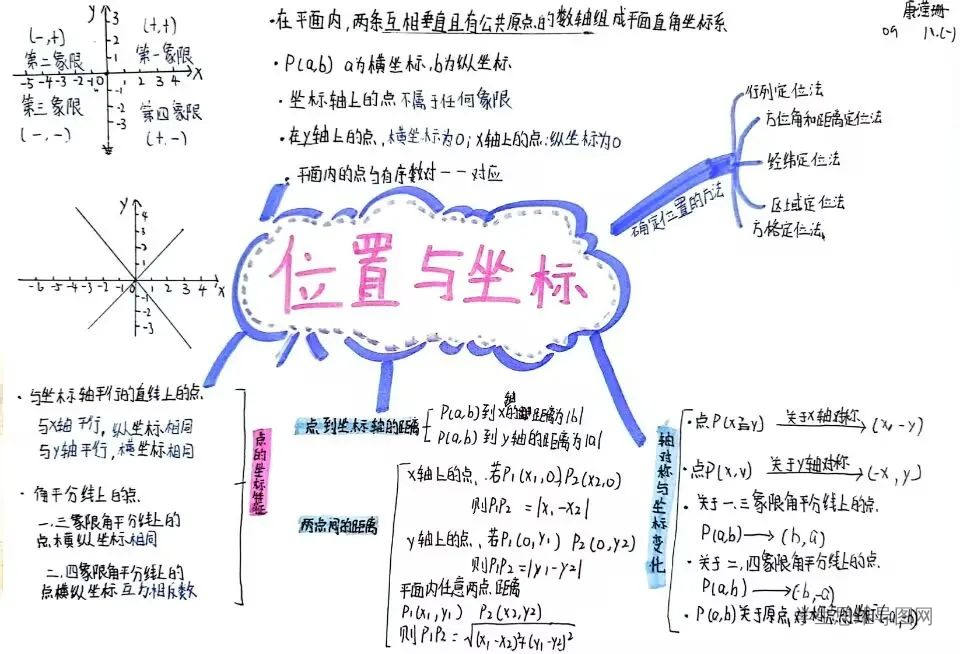 康滢珊
09 18.(一)
(-,+)
第二象限
(+,+)
第一象限
第三象限
(-,-)
第四象限
(+,-)
y
3
2
1
-5 -4 -3 -2 -1 0 1 2 3 4 x
-1
-2
-3
·在平面内,两条互相垂直且有公共原点的数轴组成平面直角坐标系
·P(a,b) a为横坐标,b为纵坐标.
·坐标轴上的点不属于任何象限
·在y轴上的点,横坐标为0;x轴上的点,纵坐标为0
·平面内的点与有序数对一一对应
确定位置的方法
行列定位法
方位角和距离定位法
经纬定位法
区域定位法
方格定位法
y
4
3
2
1
-6 -5 -4 -3 -2 -1 0 1 2 3 4 x
-1
-2
-3
位置与坐标
点的坐标特征
·与坐标轴平行的直线上的点.
与x轴平行,纵坐标相同
与y轴平行,横坐标相同
·角平分线上的点.
一.三象限角平分线上的
点横纵坐标相同
二.四象限角平分线上的
点横纵坐标互为相反数
点到坐标轴的距离
P(a,b)到x轴的距离为|b|
P(a,b)到y轴的距离为|a|
两点间的距离
x轴上的点.若P1(x1,0),P2(x2,0)
则P1P2=|x1-x2|
y轴上的点、若P1(0,y1) P2(0,y2)
则P1P2=|y1-y2|
平面内任意两点距离
P1(x1,y1) P2(x2,y2)
则P1P2=√(x1-x2)²+(y1-y2)²
轴对称与坐标变化
·点P(x,y) 关于x轴对称 (x,-y)
·点P(x,y) 关于y轴对称 (-x,y)
·关于一.三象限角平分线上的点.
P(a,b)→(b,a)
·关于二,四象限角平分线上的点.
P(a,b)→(-b,-a)
·P(a,b)关于原点
思维导图网